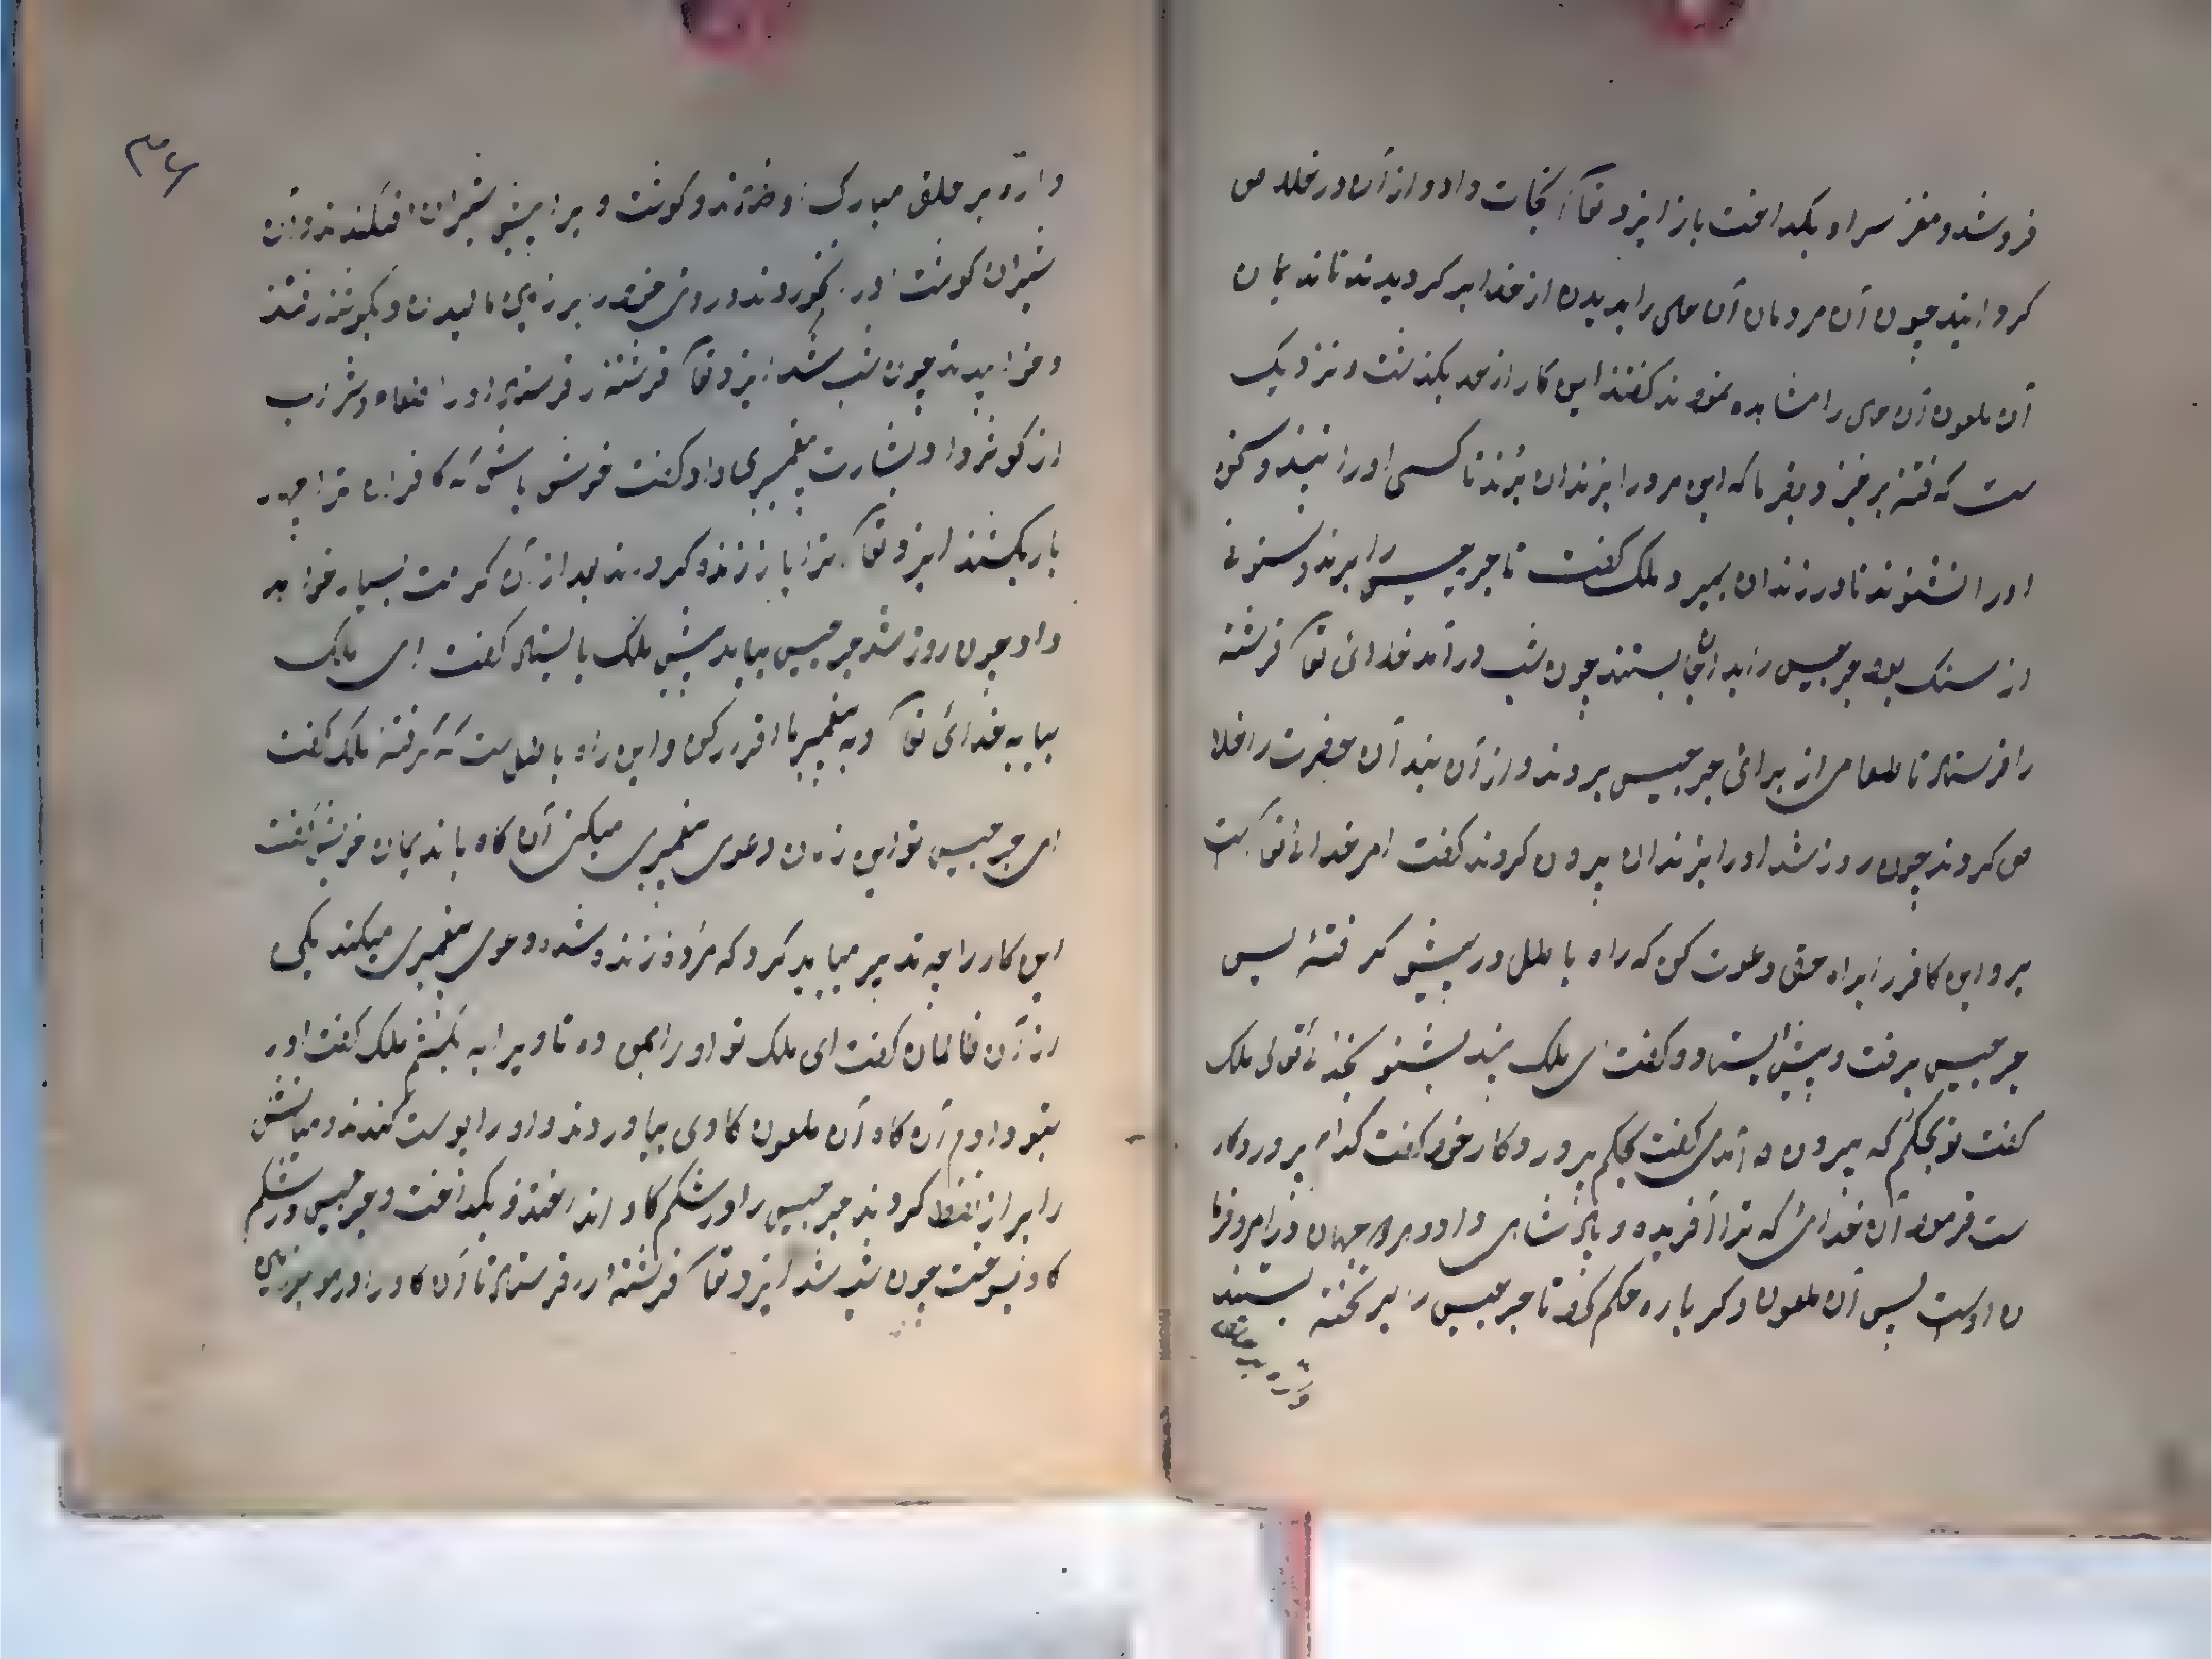 فروشد و مغز سر او بکداخت باز ایزد تعآ نجات داد و از آن در خلاص
کردانید چون آن مردمان آن حال را بدیدن از خدا بر کردیدند تا ندیمان
آن ملعون آن حال را مشاهده نمودند کفتند این کار از حد بکذشت و نزدیک
ست که فتنه برخیزد بفرما که این مرد را بزندان برند تا کسی او را نبیند و سخن
او را نشنوند تا در زندان بمیرد ملک کفت تا جرجیس را ببرند و ستونی
از سنک بود جرجیس را بدانجا بستند چون شب درآمد خدائ تعآ فرشته
را فرستاد تا طعامی از برائ جرجیس بردند و از آن بند آن حضرت را خلا
ص کردند چون روز شد او را از زندان بیرون کردند کفت امر خدائ تعآ است
برو این کافر را براه حق دعوت کن که راه باطل در پیش کرفتهٔ پس
جرجیس برفت و پیش ایستاد و کفت ای ملک پند بشنو بخدائ تعالی ملک
کفت تو بحکم که بیرون آمدی کفت بحکم پروردکار خود کفت کدام پروردکار
ست فرمود آن خدائ که ترا آفریده و پادشاهی داد و هر دو جهان در امر و فرما
ن اوست پس آن ملعون دکر باره حکم کرد تا جرجیس را بر تخته بستند
۳۶
و اره بر حلق مبارک او نهادند و کوشت ویرا پیش شیران افکندند و آن
شیران کوشت او را نخوردند و روی خود را بر زمین مالیدن و بکوشه رفتند
و خوابیدند چون شب شد ایزد تعآ فرشته را فرستاد او را طعام و شراب
از کوثر داد و بشارت پیغمبری داد و کفت خوش باش که کافران ترا چهار
بار بکشند ایزد تعآ ترا باز زنده کرداند بعد از آن کرامت بسیار خواهد
داد چون روز شد جرجیس بیامد پیش ملک بایستاد کفت ای ملک
بیا به خدائ تعآ و به پیغمبر ما اقرار کن و این راه باطل ست که کرفته ملک کفت
ای جرجیس تو این زمان دعوی پیغمبری میکنی آن کاه با ندیمان خویش کفت
این کار را چه تدبیر میباید کرد که مرده زنده شد و دعوی پیغمبری میکند یکی
از آن ظالمان کفت ای ملک تو او را بمن ده تا ویرا به بکشم ملک کفت او را
بتو دادم آن کاه آن ملعون کاوی بیاوردند و او را پوست کندند و میانش
را پر از نفط کردند جرجیس را در شکم کاو انداختند و بکداخت و جرجیس در شکم
کاو بسوخت چون شب شد ایزد تعآ فرشته را فرستاد تا آن کاو را